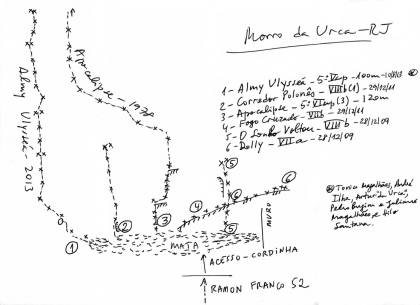 Morro da Urca - RJ
1 - Almy Ulysséa - 5º VSup - 100m - 10/8/13
2 - Corredor Polonês - VIIIb (1) - 29/12/11
3 - Apocalipse - 5º VIsup (3) - 120m
4 - Fogo Cruzado - VIIb - 29/12/11
5 - O Sonho Voltou - VIIIb - 28/12/09
6 - Dolly - VIIa - 28/12/09
Tonico Magalhães, André
Ilha, Artur da Urca,
Pedro Bugim e Julianne
Magalhães e Hilo
Santana.
Almy Ulyssés - 2013
Apocalipse - 1978
1
2
3
4
5
5
6
6
MATA
MURO
ACESSO - CORDINHA
RAMON FRANCO 52